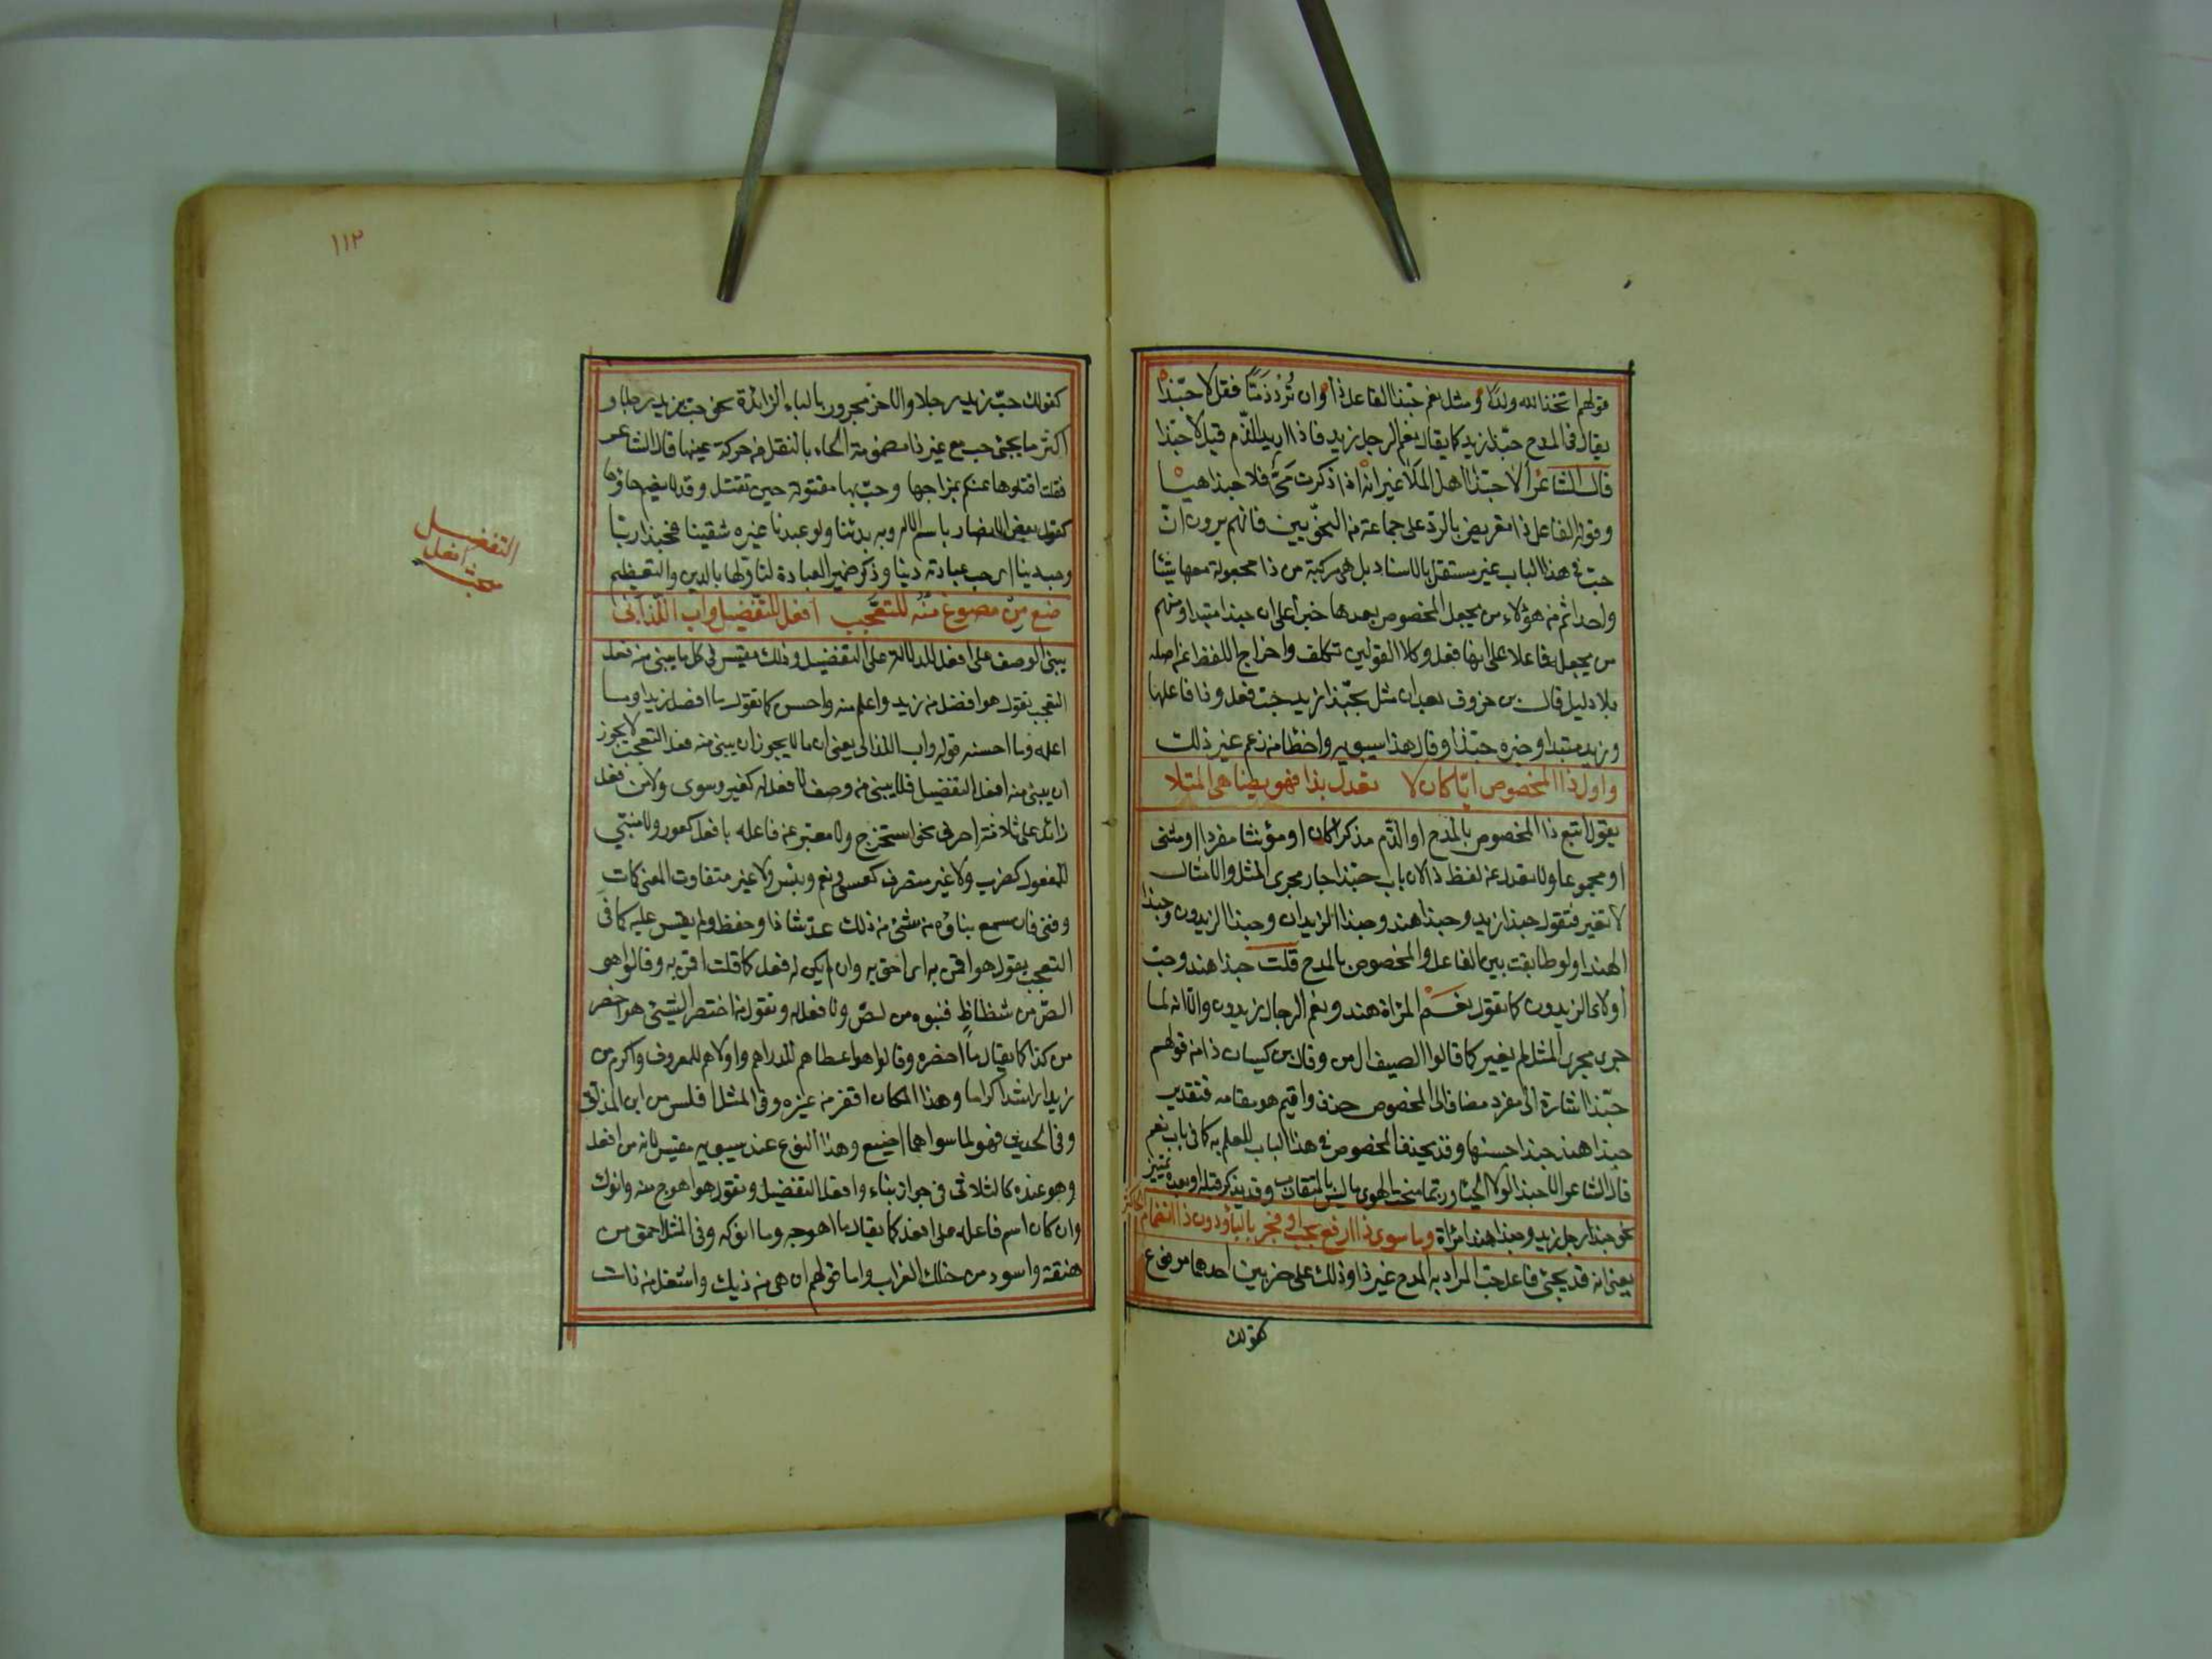 قولهم اتخذ الله ولدا ومثل نعم حبّذا الفاعل ذا وان تُرِدْ ذمّا فقل لا حبّذا
يقال في المدح حبّذا زيد كما يقال نعم الرجل زيد فاذا اريد الذّم قيل لا حبّذا
قال الشاعر ألا حبّذا اهل الملا غير انه اذا ذكرت ميّ فلا حبذا هيا
وقوله الفاعل ذا تعريض بالرد على جماعة من النحويين فانهم يرون انّ
حبّ في هذا الباب غير مستقل بالاسناد بل هي مركبة من ذا مجعولة معها شيئا
واحدا ثم من هؤلاء من يجعل المخصوص بعدها خبرا على ان حبذا مبتدا ومنهم
من يجعله فاعلا على انها فعل وكلا القولين تكلف واخراج اللفظ عن اصله
بلا دليل قال بن خروف بعد ان مثل بحبّذا زيد حبّ فعل وذا فاعلها
وزيد مبتدا وخبره حبّذا وقال هذا سيبويه واخطا من زعم غير ذلك
واول ذا المخصوص ايّا كان لا تعدل بذا فهو يضاهي المثلا
يقول اتبع ذا المخصوص بالمدح او الذّم مذكرا كان او مؤنثا مفردا او مثنى
او مجموعا ولا تعدل عن لفظ ذا لان باب حبّذا جار مجرى المثل والامثال
لا تغير فتقول حبذا زيد وحبذا هند وحبذا الزيدان وحبذا الزيدون وحبذا
الهندا ولو طابقت بين الفاعل والمخصوص بالمدح قلت حبذا هند وحب
أولاء الزيدون كما تقول نعم المراة هند ونعم الرجال زيدون والا انه لما
جرى مجرى المثل لم يغير كما قالوا الصيف ال من وقال بن كيسان ذا من قولهم
حبّذا اشارة الى مفرد مضاف الى المخصوص حذف واقيم هو مقامه فتقدير
حبذا هند حبذا حسنها وقد يحذف المخصوص في هذا الباب للعلم به كما في باب نعم
قال الشاعر الا حبذا لولا الحيا وربما منحت الهوى ما ليس بالمتقارب وقد يذكر قبله او بعده تمييز
نحو حبذا رجل زيد وحبذا هند امراة وما سوى ذا ارفع بحب او فجر بالبا ودون ذا انضمام الحا كثر
يعني انه قد يجئ فاعل حب المراد به المدح غير ذا وذلك على ضربين احدهما مرفوع
كقولك
١١٢
كقولك حبّ زيد رجلا والاخر مجرور بالباء الزائدة نحو حب بزيد رجلا و
اكثر ما يجئ حب مع غير ذا مضمومة الحاء بالنقل من حركة عينها قال الشاعر
فقلت اقتلوها عنكم بمزاجها وحبّ بها مقتولة حين تقتل وقد لا يضم حاؤها
كقول بعض الانصار باسم الاله وبه بدئنا ولو عبدنا غيره شقينا فحبذا ربا
وحب دينا اي حب عبادته دينا وذكر ضمير العبادة لتاولها بالدين والتعظيم
صغ من مصوغ منه للتعجب افعل للتفضيل واب اللذ ابي
يبنى الوصف على افعل للدلالة على التفضيل وذلك مقيس في كل ما يبنى منه فعل
التعجب تقول هو افضل من زيد واعلم منه واحسن كما تقول ما افضل زيدا وما
اعلمه وما احسنه قوله واب اللذ ابي يعني ان ما لا يجوز ان يبنى منه فعل التعجب لا يجوز
ان يبنى منه افعل التفضيل فلا يبنى من وصف لا فعل له كغير وسوى ولا من فعل
زائد على ثلاثة احرف نحو استخرج ولا معبر عن فاعله بافعل كعور ولا مبني
للمفعول كضرب ولا غير متصرف كعسى ونعم وبئس ولا غير متفاوت المعنى كمات
وفنى فان سمع بناؤه من شئ من ذلك عدّ شاذا وحفظ ولم يقس عليه كما في
التعجب يقول هو اقمن به اي احق به وان لم يكن له فعل كما قلت اقمن به وقالوا هو
الصّ من شظاظ فبنوه من لصّ ولا فعل له وتقول من اختصر الشئ هو اخصر
من كذا كما يقال ما اخصره وقالوا هو اعطاهم للدراهم واولاهم للمعروف واكرم من
زيد اي اشد اكراما وهذا المكان اقفر من غيره وفي المثل افلس من ابن المذلق
وفي الحديث فهو لما سواهما اضيع وهذا النوع عند سيبويه مقيس لانه من افعل
وهو عنده كالثلاثي في جواز بناء وافعل التفضيل وتقول هو اهوج منه وانوك
وان كان اسم فاعله على افعل كما يقال ما اهوجه وما انوكه وفي المثل احمق من
هبنقة واسود من حنك الغراب واما قولهم ازهى من ديك واشغل من ذات
التفضيل
افعل
مبحث